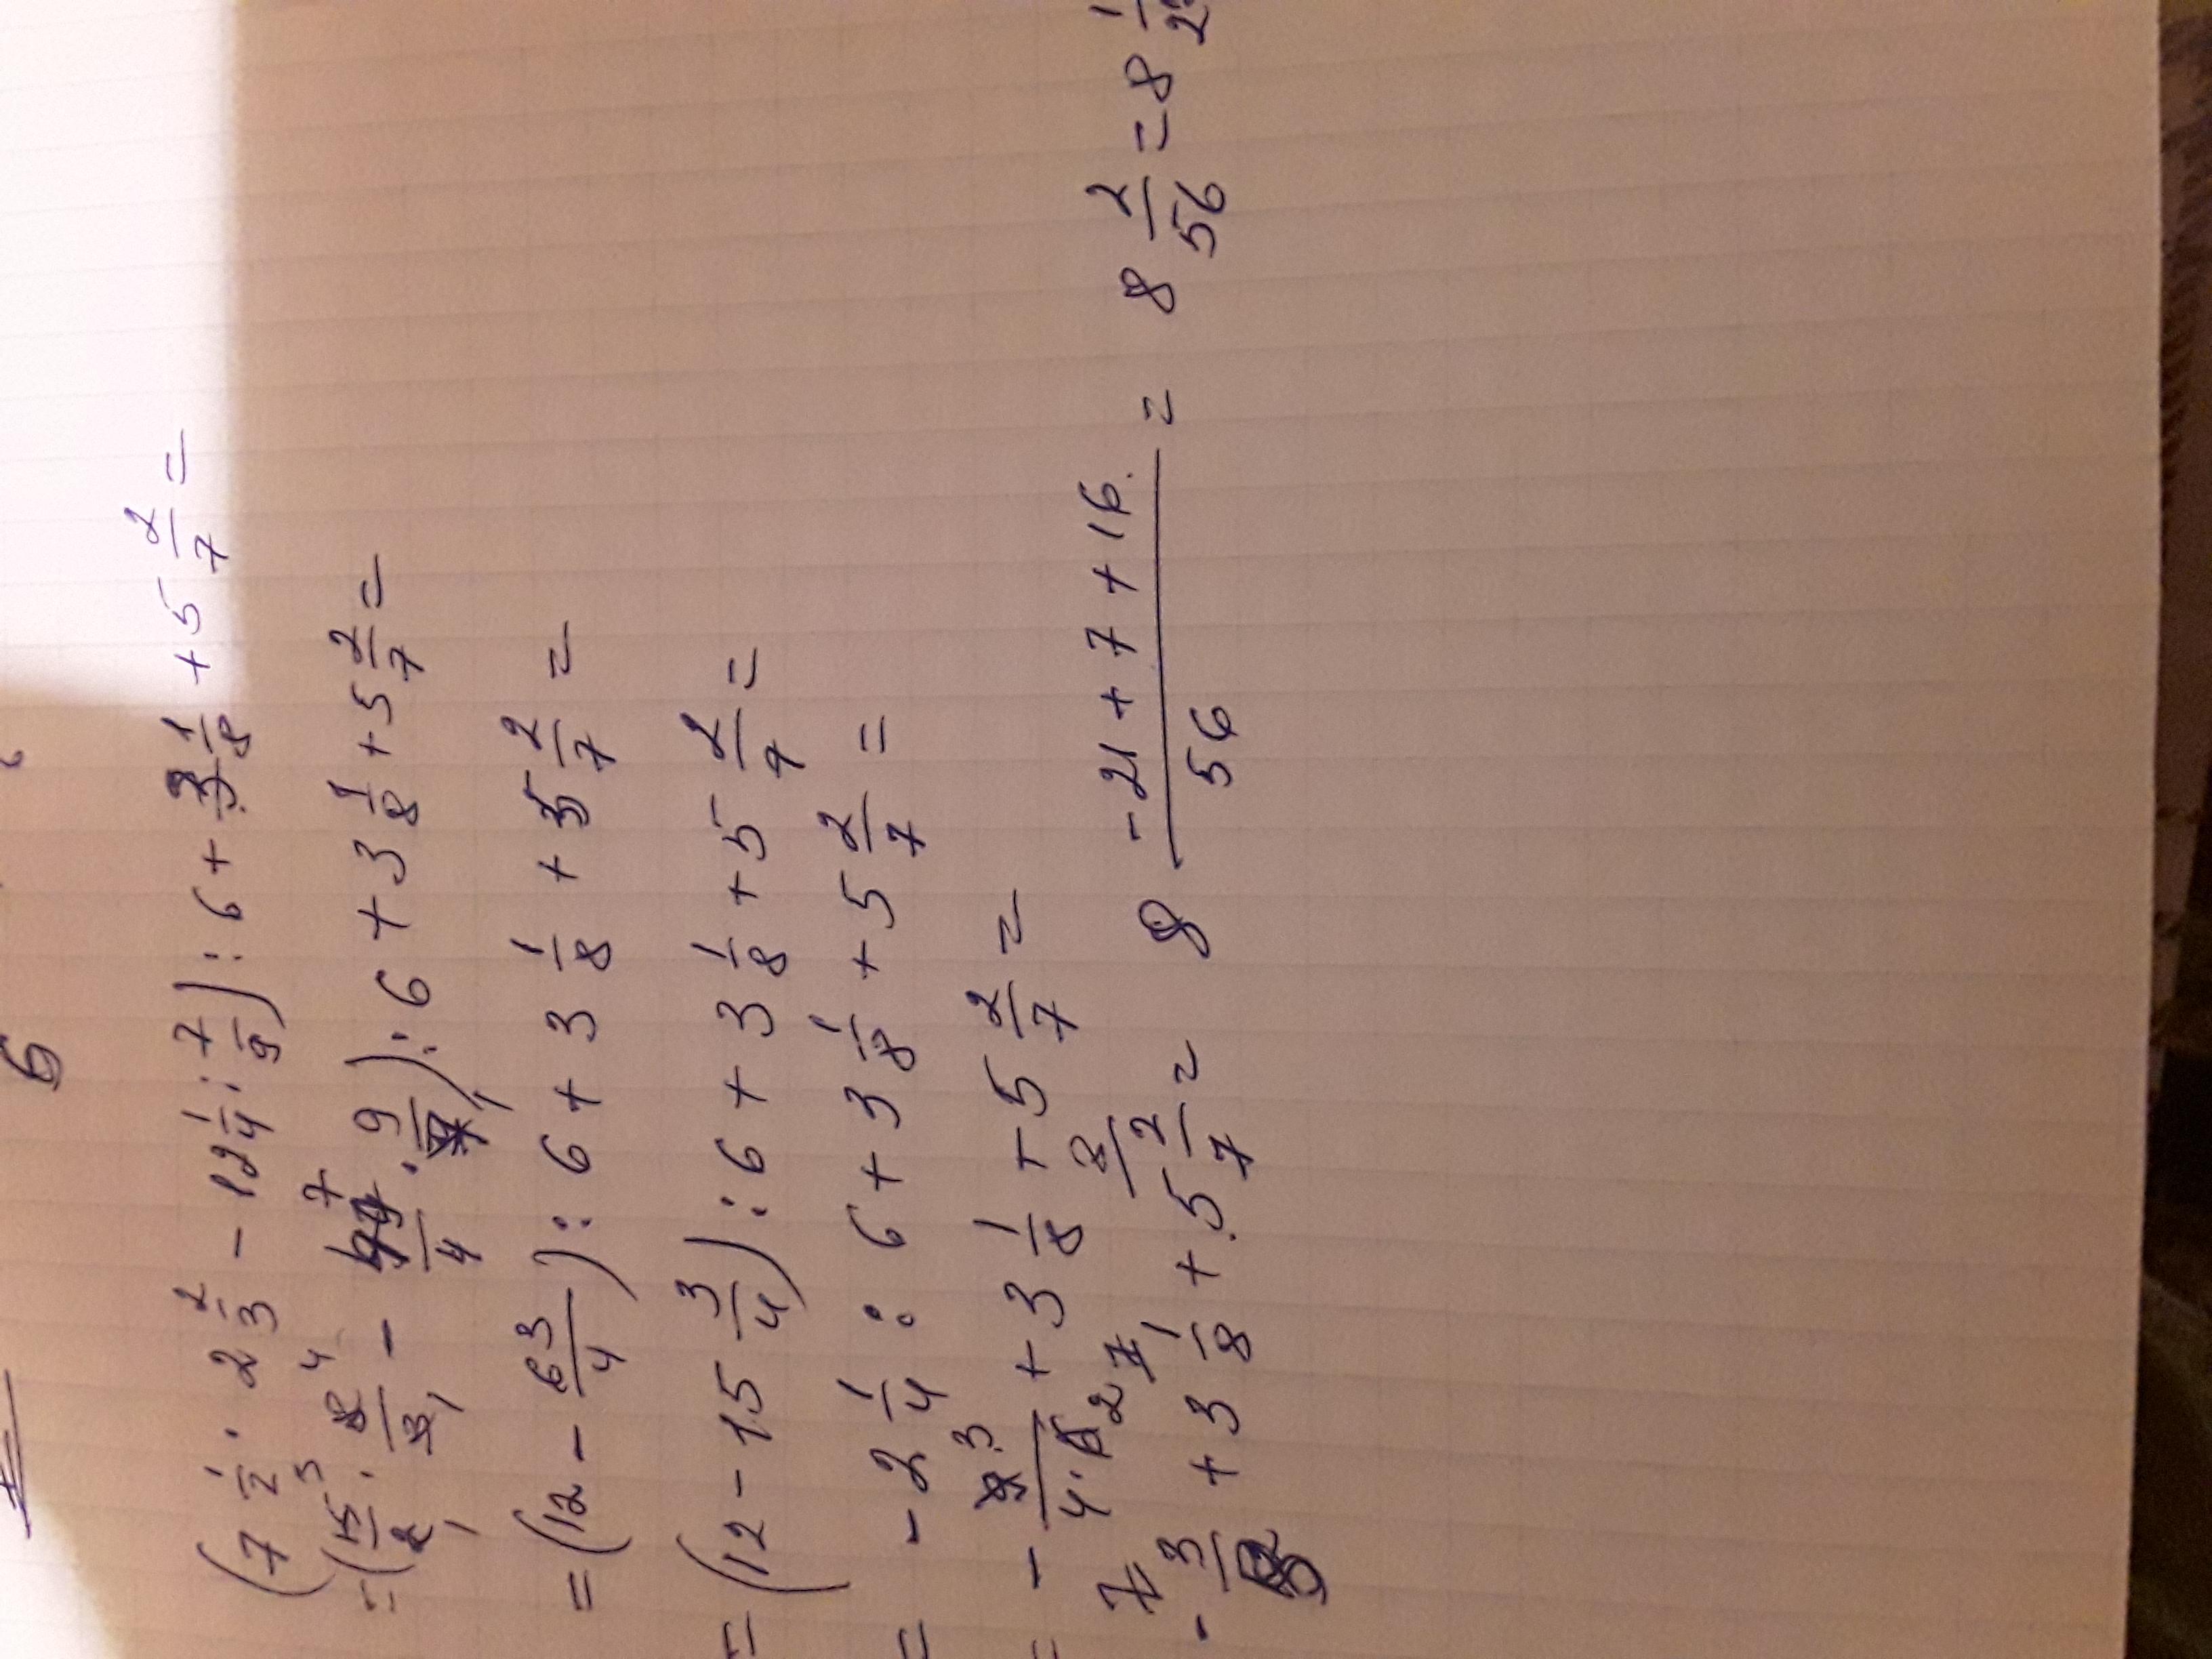 б
(7 1/2 · 2 2/3 - 12 1/4 : 7/9) : 6 + 3 1/8 + 5 2/7 =
= (15/2 · 8/3 - 49/4 · 9/7) : 6 + 3 1/8 + 5 2/7 =
= (12 - 63/4) : 6 + 3 1/8 + 5 2/7 =
= (12 - 15 3/4) : 6 + 3 1/8 + 5 2/7 =
= - 2 1/4 : 6 + 3 1/8 + 5 2/7 =
= - 9/(4·6) + 3 1/8 + 5 2/7 =
- 3/8 + 3 1/8 + 5 2/7 = 8 (-21 + 7 + 16)/56 = 8 2/56 = 8